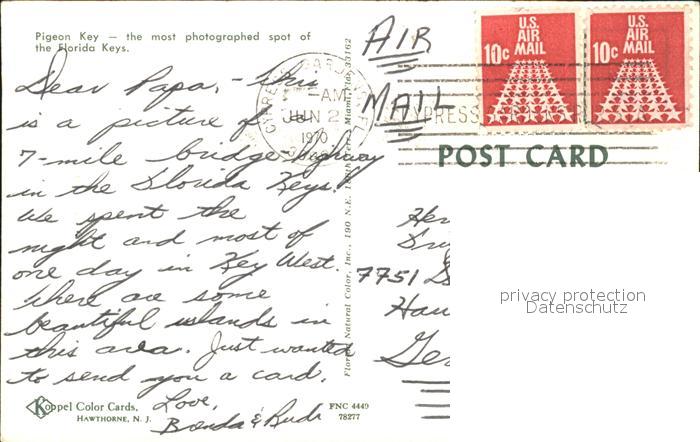 Pigeon Key — the most photographed spot of
the Florida Keys.
Dear Papa, - This
is a picture of
7-mile bridge-highway
in the Florida Keys.
We spent the
night and most of
one day in Key West.
There are some
beautiful islands in
this area. Just wanted
to send you a card.
Love,
&
Koppel Color Cards,
HAWTHORNE, N. J.
FNC 4449
78277
Florida Natural Color, Inc., 190 N.E.
Miami, Fla. 33162
AM
JUN 2
1970
AIR
MAIL
U.S.
AIR
MAIL
10c
U.S.
AIR
MAIL
10c
POST CARD
7751
privacy protection
Datenschutz